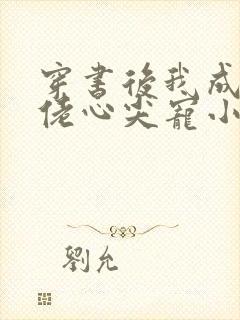 穿書後我成
佬心尖寵小
劉允